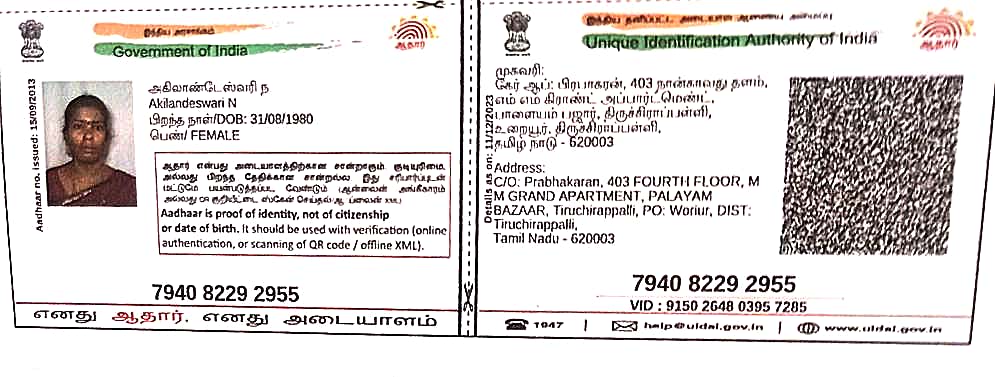 இந்திய அரசாங்கம்
Government of India
ஆதார்
Aadhaar no. issued: 15/09/2013
அகிலாண்டேஸ்வரி ந
Akilandeswari N
பிறந்த நாள்/DOB: 31/08/1980
பெண்/ FEMALE
ஆதார் என்பது அடையாளத்திற்கான சான்றாகும் குடியுரிமை
அல்லது பிறந்த தேதிக்கான சான்றல்ல இது சரிபார்ப்புடன்
மட்டுமே பயன்படுத்தப்பட வேண்டும் (ஆன்லைன் அங்கீகாரம்
அல்லது QR குறியீட்டை ஸ்கேன் செய்தல்/ஆஃப்லைன் XML)
Aadhaar is proof of identity, not of citizenship
or date of birth. It should be used with verification (online
authentication, or scanning of QR code / offline XML).
7940 8229 2955
எனது ஆதார், எனது அடையாளம்
இந்திய தனிப்பட்ட அடையாள ஆணைய அமைப்பு
Unique Identification Authority of India
ஆதார்
Details as on: 11/12/2023
முகவரி:
கேர் ஆப்: பிரபாகரன், 403 நான்காவது தளம்,
எம் எம் கிராண்ட் அப்பார்ட்மெண்ட்,
பாளையம் பஜார், திருச்சிராப்பள்ளி,
உறையூர், திருச்சிராப்பள்ளி,
தமிழ் நாடு - 620003
Address:
C/O: Prabhakaran, 403 FOURTH FLOOR, M
M GRAND APARTMENT, PALAYAM
BAZAAR, Tiruchirappalli, PO: Woriur, DIST:
Tiruchirappalli,
Tamil Nadu - 620003
7940 8229 2955
VID : 9150 2648 0395 7285
1947 | help@uidai.gov.in | www.uidai.gov.in